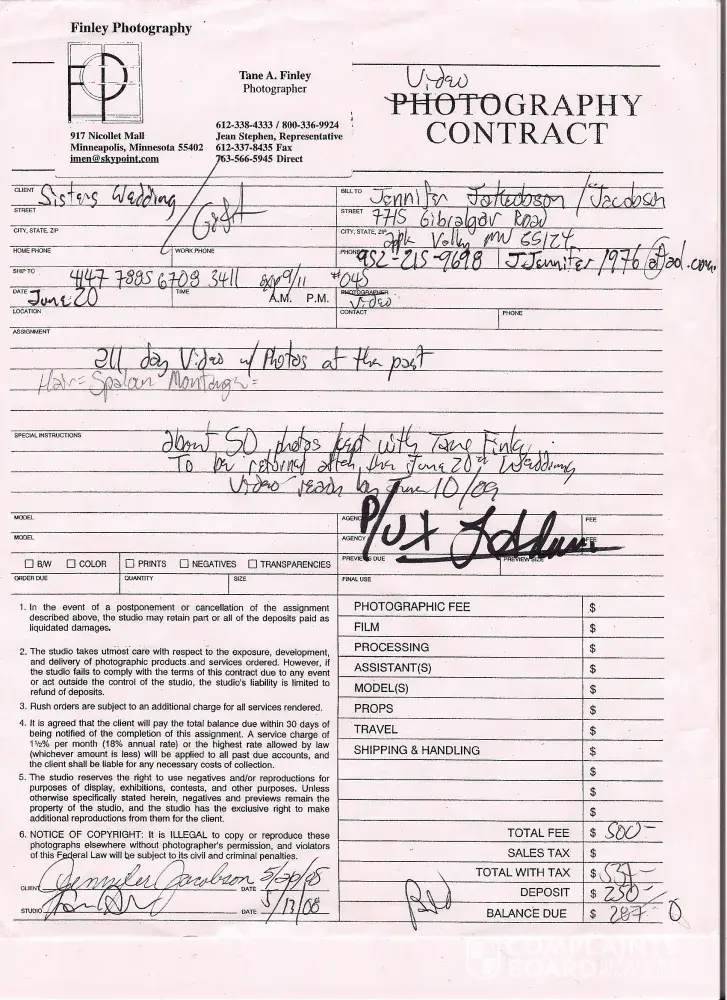 Finley Photography
Tane A. Finley
Photographer
917 Nicollet Mall
Minneapolis, Minnesota 55402
imen@skypoint.com
612-338-4333 / 800-336-9924
Jean Stephen, Representative
612-337-8435 Fax
763-566-5945 Direct
Video
PHOTOGRAPHY
CONTRACT
CLIENT Sisters Wedding
Gift
STREET
CITY, STATE, ZIP
HOME PHONE WORK PHONE
BILL TO Jennifer / Jacobson
STREET 7715 Gibralgar Road
CITY, STATE, ZIP Apple Valley MN 55124
PHONE 952-215-9698 JJennifer1976@aol.com
SHIP TO 4147 7885 6708 3411 exp 9/11 #045
DATE June 20 TIME A.M. P.M. PHOTOGRAPHER Video
LOCATION CONTACT PHONE
ASSIGNMENT
all day Video w/ Photos at the past
Hair=
SPECIAL INSTRUCTIONS
about 50 photos kept with Tane Finley.
To be returned after the June 20th Wedding
Video ready by June 10/09
MODEL AGENCY FEE
MODEL AGENCY FEE
P/U X
B/W COLOR PRINTS NEGATIVES TRANSPARENCIES PREVIEWS DUE PREVIEW SIZE
ORDER DUE QUANTITY SIZE FINAL USE
1. In the event of a postponement or cancellation of the assignment
described above, the studio may retain part or all of the deposits paid as
liquidated damages.
2. The studio takes utmost care with respect to the exposure, development,
and delivery of photographic products and services ordered. However, if
the studio fails to comply with the terms of this contract due to any event
or act outside the control of the studio, the studio's liability is limited to
refund of deposits.
3. Rush orders are subject to an additional charge for all services rendered.
4. It is agreed that the client will pay the total balance due within 30 days of
being notified of the completion of this assignment. A service charge of
1½% per month (18% annual rate) or the highest rate allowed by law
(whichever amount is less) will be applied to all past due accounts, and
the client shall be liable for any necessary costs of collection.
5. The studio reserves the right to use negatives and/or reproductions for
purposes of display, exhibitions, contests, and other purposes. Unless
otherwise specifically stated herein, negatives and previews remain the
property of the studio, and the studio has the exclusive right to make
additional reproductions from them for the client.
6. NOTICE OF COPYRIGHT: It is ILLEGAL to copy or reproduce these
photographs elsewhere without photographer's permission, and violators
of this Federal Law will be subject to its civil and criminal penalties.
CLIENT Jennifer Jacobson DATE
STUDIO DATE 5/13/08
PHOTOGRAPHIC FEE $
FILM $
PROCESSING $
ASSISTANT(S) $
MODEL(S) $
PROPS $
TRAVEL $
SHIPPING & HANDLING $
$
$
$
TOTAL FEE $ 500-
SALES TAX $
TOTAL WITH TAX $ 537-
DEPOSIT $ 250-
BALANCE DUE $ 287 0
Pd
COMPLAINTS
BOARD